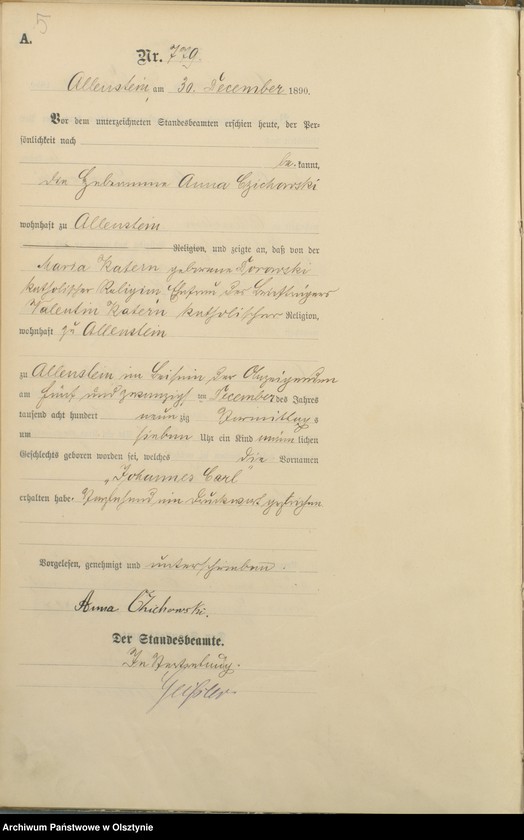 5
A.
Nr. 770
Allenstein, am 30. December 1890.
Vor dem unterzeichneten Standesbeamten erschien heute, der Per-
sönlichkeit nach
be kannt,
die Hebamme Anna Czichowski
wohnhaft zu Allenstein
Religion, und zeigte an, daß von der
Maria Katern geborene
katholischer Religion Ehefrau des Briefträgers
Valentin Katern katholischer Religion,
wohnhaft zu Allenstein
zu Allenstein im Beisein der Anzeigenden
am fünf und zwanzigsten December des Jahres
tausend acht hundert neun zig Vormittags
um sieben Uhr ein Kind männ lichen
Geschlechts geboren worden sei, welches die Vornamen
„Johannes Carl“
erhalten habe. Vorstehend ein Druckwort gestrichen
Vorgelesen, genehmigt und unterschrieben.
Anna Czichowski.
Der Standesbeamte.
In Vertretung.
Archiwum Państwowe w Olsztynie